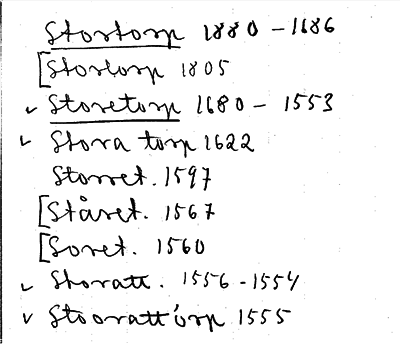 Stortorp 1880 - 1686
[Stortorp 1805
✓ Storetorp 1680 - 1553
✓ Stora torp 1622
Storret. 1597
[Ståret. 1567
[Soret. 1560
✓ Storatt. 1556 - 1554
✓ Stoorattórp 1555